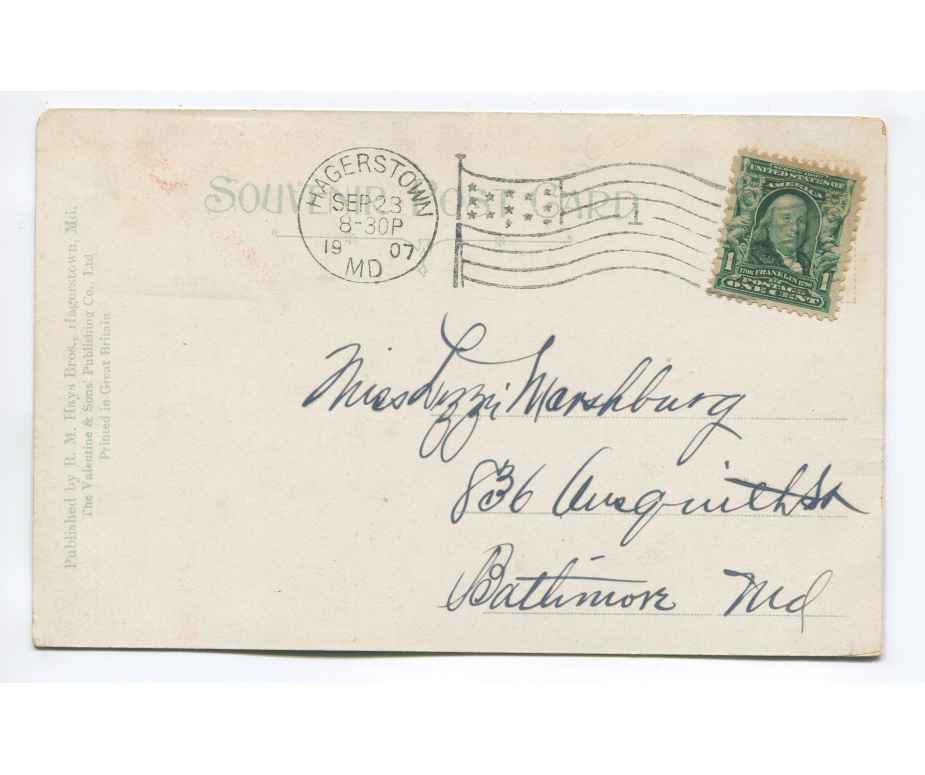 SOUVENIR POST CARD
HAGERSTOWN
SEP 23
8-30P
19 07
MD
1
UNITED STATES OF
AMERICA
1706 FRANKLIN 1790
1 POSTAGE 1
ONE CENT
Miss Lizzie Marshburg
836 Ausquith St
Baltimore Md
Published by R. M. Hays Bros., Hagerstown, Md.
The Valentine & Sons' Publishing Co., Ltd
Printed in Great Britain